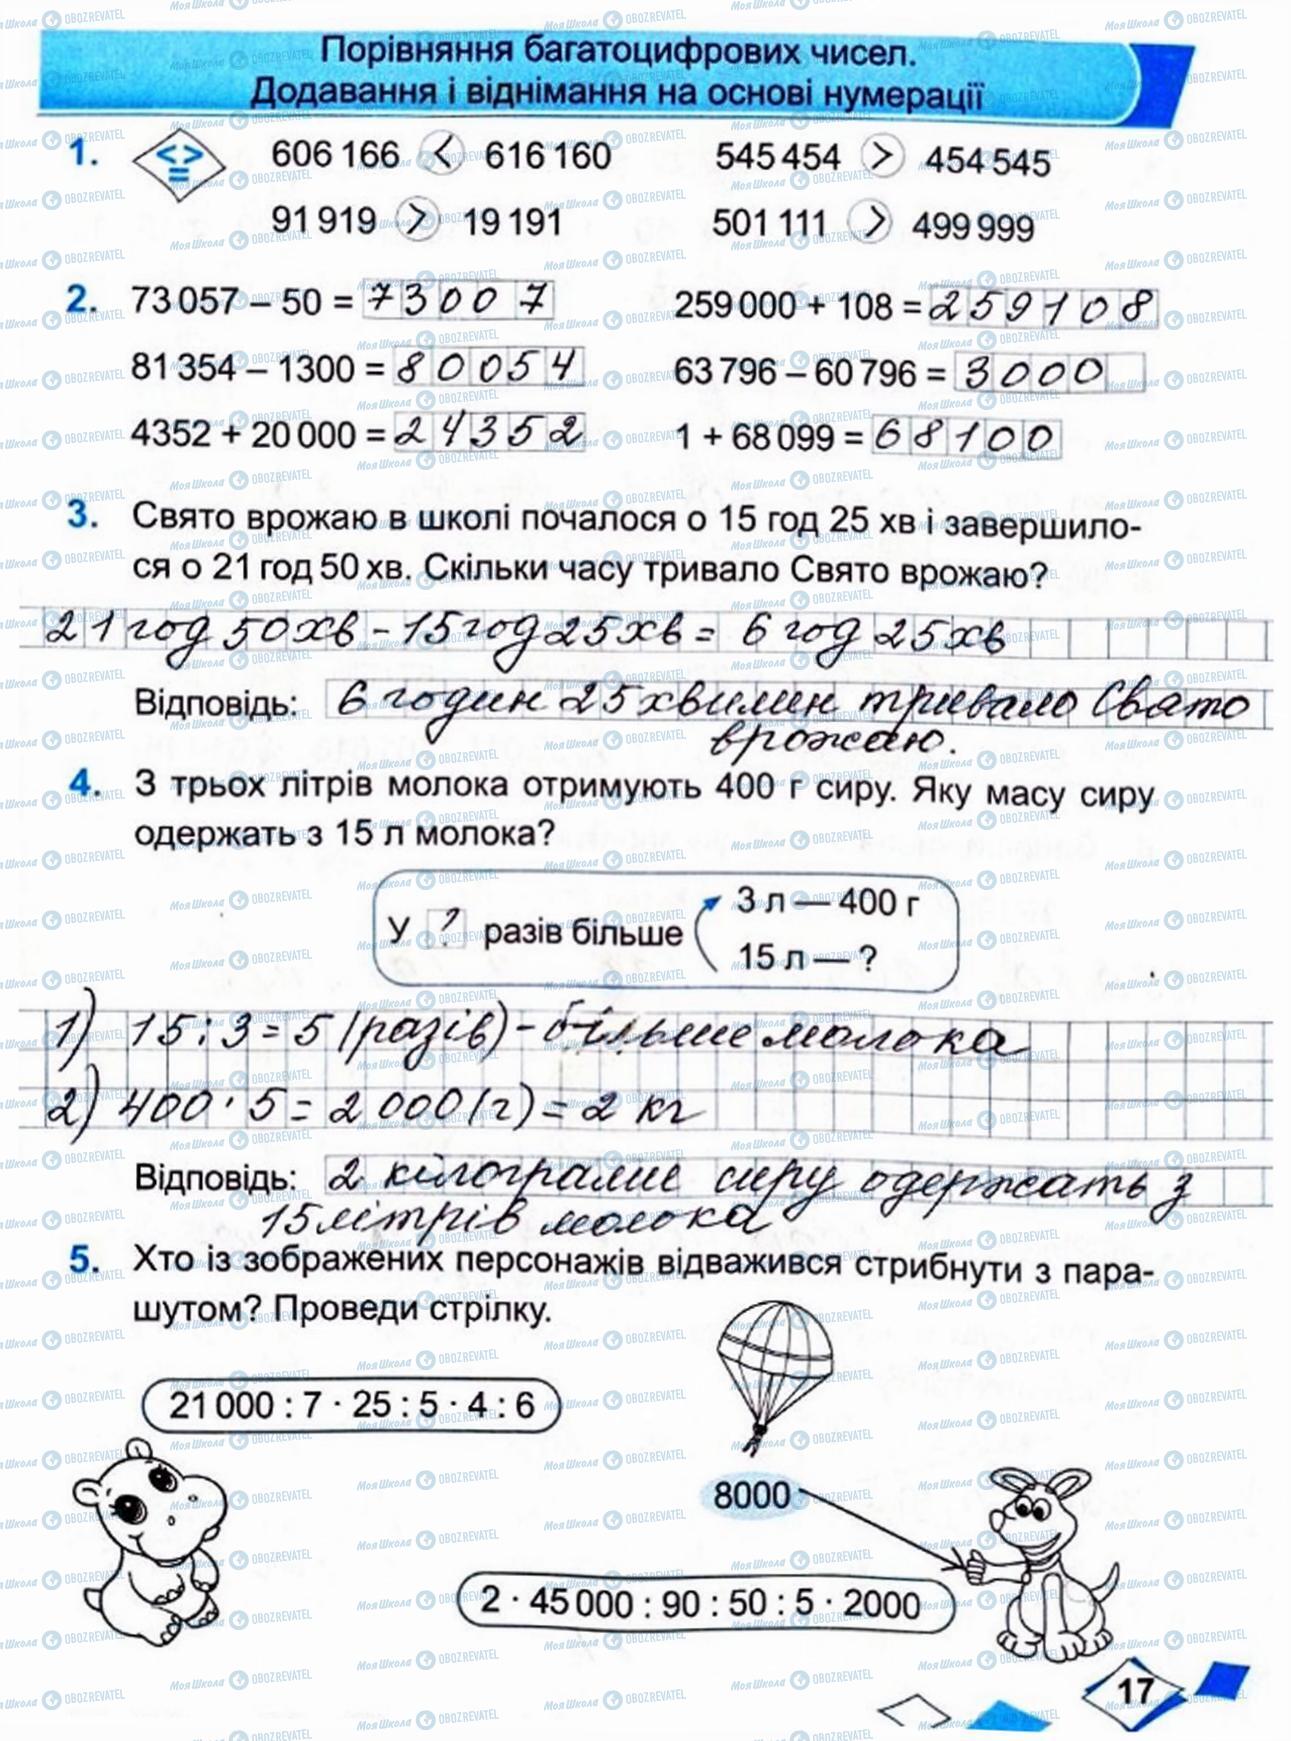 Порівняння багатоцифрових чисел.
Додавання і віднімання на основі нумерації
1. < > = 606 166 < 616 160 545 454 > 454 545
91 919 > 19 191 501 111 > 499 999
2. 73 057 – 50 = 73007 259 000 + 108 = 259108
81 354 – 1300 = 80054 63 796 – 60 796 = 3000
4352 + 20 000 = 24352 1 + 68 099 = 68100
3. Свято врожаю в школі почалося о 15 год 25 хв і завершило-
ся о 21 год 50 хв. Скільки часу тривало Свято врожаю?
21 год 50 хв - 15 год 25 хв = 6 год 25 хв
Відповідь: 6 годин 25 хвилин тривало Свято
врожаю.
4. З трьох літрів молока отримують 400 г сиру. Яку масу сиру
одержать з 15 л молока?
У ? разів більше
3 л — 400 г
15 л — ?
1) 15 : 3 = 5 (разів) - більше молока
2) 400 · 5 = 2 000 (г) = 2 кг
Відповідь: 2 кілограми сиру одержать з
15 літрів молока
5. Хто із зображених персонажів відважився стрибнути з пара-
шутом? Проведи стрілку.
21 000 : 7 · 25 : 5 · 4 : 6
8000
2 · 45 000 : 90 : 50 : 5 · 2000
17
МояШкола OBOZREVATEL